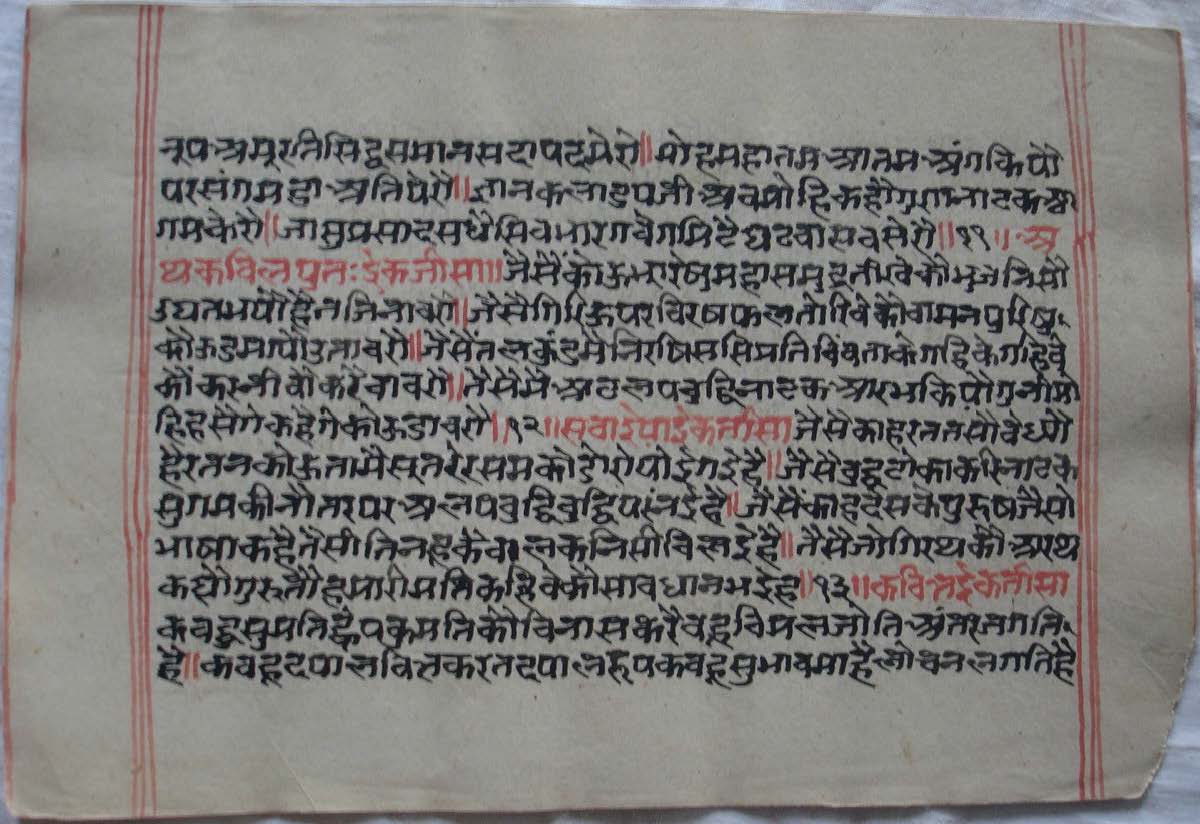 नूपअमूरतिसिद्धसमानसदापदमेरो॥मोहमहातमआतमअंगकियो
परसंगमहाअतिघेरौ॥ज्ञानकलाउपजीअबमोहिकहौगुणनाटकआ
गमकेरो॥जासुप्रसादसधैसिवमारगवेगमिटैघटवासवसेरो॥११॥अ
थकवित्तपुनःइकतीसा॥जैसैंकोऊमूरषमहासमुद्रतरिवेकौभुजानिसौ
उद्यतभयौहैतजिनावरौ॥जैसैगिरिऊपरविरषफलतोरिवेकौवामनपुरिषु
कोऊउमग्योउतावरो॥जैसेंजलकुंडमेनिरषिससिप्रतिबिंबताकेगहि
कौकरनीचौकरैबावरौ॥तैसैमैअलपबुद्धिनाटकआरंभकियोगुनीमो
हिहसैगेकहैगेकोऊडावरौ॥१२॥सवाईयाइकतीसाजैसेकाहूरतनसौवेध्यौ
हैरतनकोऊतामैसूतरेसमकीडोरीपोईगईहै॥जैसैबुद्धटीकाकरिनाटक
सुगमकीनौतापरअलपबुद्धिबुद्धिपरनईहै॥जैसैंकाहूदेसकेपुरुषजैसी
भाषाकहैतैसीतिनहूकेबालकनिसीषिलईहै॥तैसैज्योंगिरथकौअरथ
कह्यौगुरुत्यौहमारीमतिकहिवेकौसावधानभईहै॥१३॥कवित्तईकतीसा
कबहूसुमतिह्वैकुमतिकौविनासकरैकबहूविमलजोतिअंतरजगति
है॥कबहूदयालचितकरतदयालरूपकबहूसुभावमाहैलोचनलगतिहै